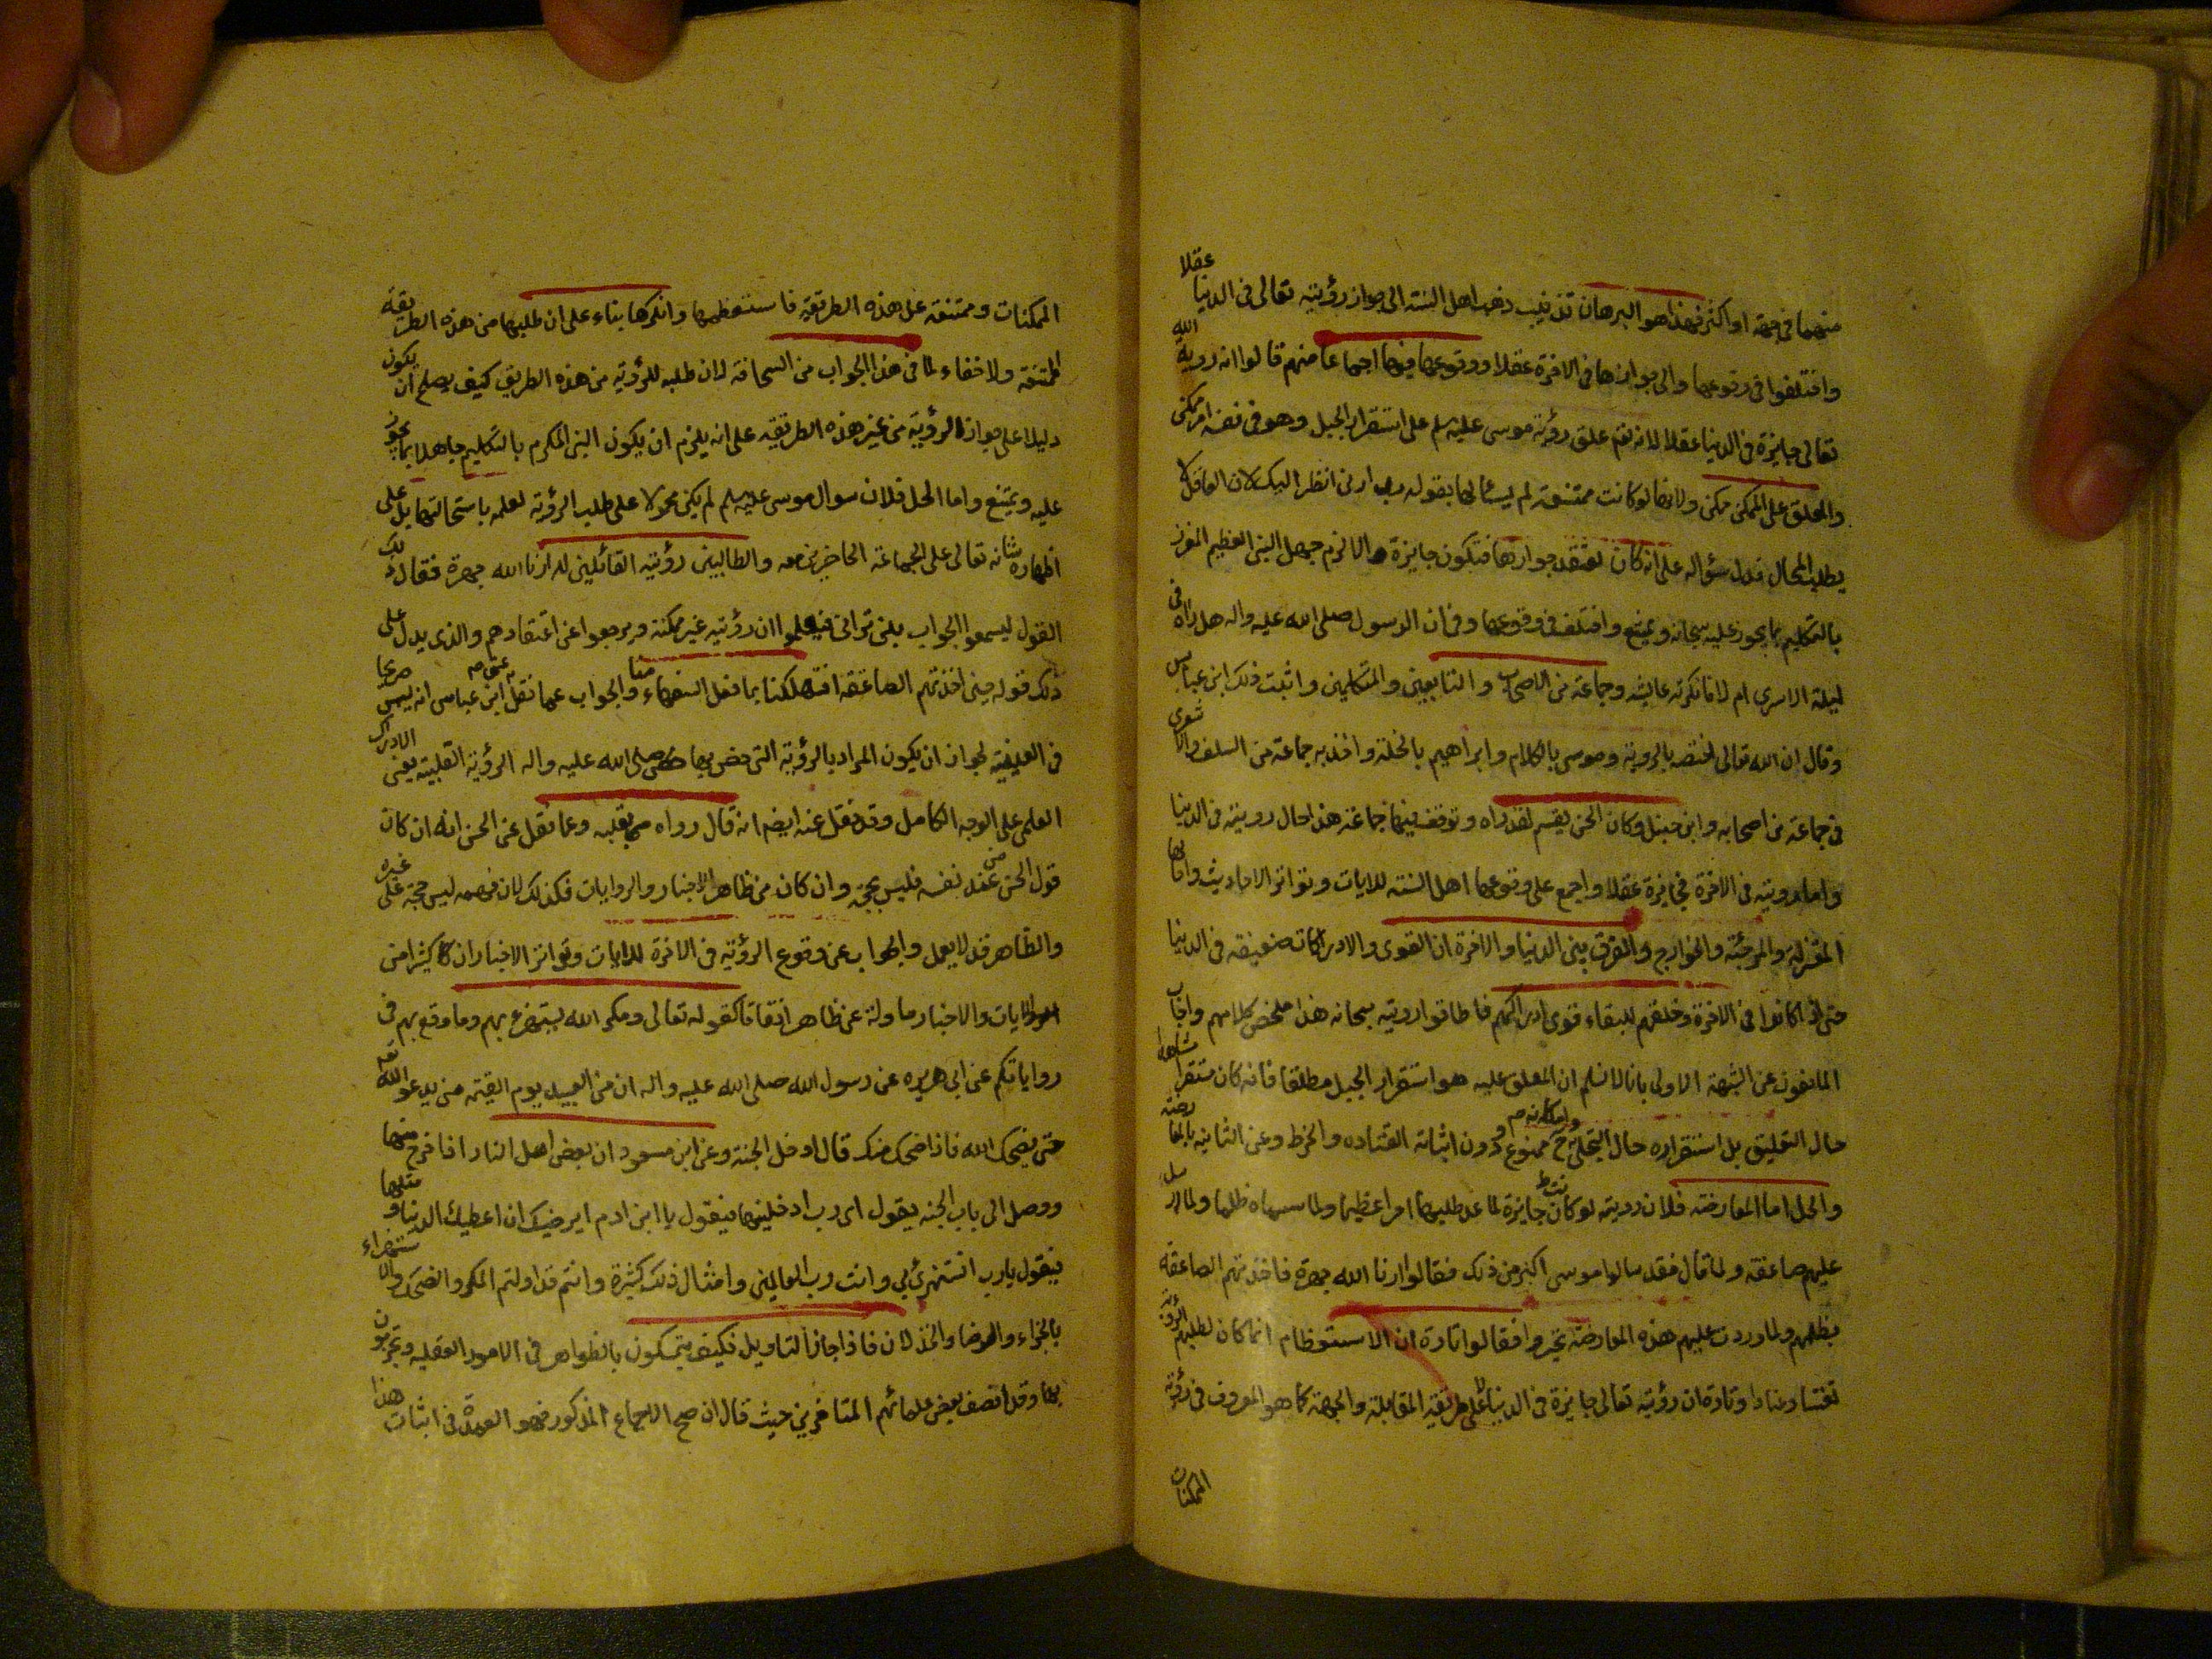 منهما في جهة او اكثر فهذا هو البرهان تذنيب ذهب اهل السنة الى جواز رؤيته تعالى في الدنيا عقلا
واختلفوا في وقوعها والى جوازها في الاخرة عقلا ووقوعها فيها اجماعا منهم قالوا انه رؤية الله
تعالى جايزة في الدنيا عقلا لانه تعم علق رؤية موسى عليه سلم على استقرار الجبل وهو في نفسه امر ممكن
والمعلق على الممكن ممكن ولانها لو كانت ممتنعة لم يسئالها بقوله رب ارنى انظر اليك لان العاقل لا
يطلب المحال فدل سؤاله على انه كان يعتقد جوازها فتكون جايزة والا لزم جهل النبى العظيم المعزز
بالتكليم بما يجوز عليه سبحانه ويمتنع واختلف في وقوعها وفي ان الرسول صلى الله عليه واله هل راه في
ليلة الاسرى ام لا فانكرته عايشه وجماعة من الاصحاب والتابعين والمتكلمين واثبت ذلك ابن عباس
وقال ان الله تعالى اختصه بالروية وموسى بالكلام وابراهيم بالخلة واخذ به جماعة من السلف والاشعرى
في جماعة من اصحابه وابن حنبل وكان الحسن يقسم لقد راه وتوقف فيها جماعة هذا حال رويته في الدنيا
واما رويته في الاخرة فجايزة عقلا واجمع على وقوعها اهل السنة للايات وتواتر الاحاديث واحالها
المعتزلة والمرجئة والخوارج والفرق بين الدنيا والاخرة ان القوى والادراكات ضعيفة في الدنيا
حتى اذا كانوا في الاخرة وخلقهم للبقاء قوى ادراكهم فاطاقوا رويته سبحانه هذا ملخص كلامهم واجاب
المانعون عن الشبهة الاولى بانا لا نسلم ان المعلق عليه هو استقرار الجبل مطلقا فانه كان مستقرا مشاهدا
حال التعليق بل استقراره حال التجلى وامكانه ح ممنوع ودون اثباته القتاده والخرط وعن الثانية بالمعارضة
والحل اما المعارضة فلان رويته لو كانت جايزة لما عد طلبها امرا عظيما ولما سماه ظلما ولما ارسل
عليهم صاعقة ولما قال فقد سالوا موسى اكبر من ذلك فقالوا ارنا الله جهرة فاخذتهم الصاعقة
بظلمهم ولما وردت عليهم هذه المعارضة تحيروا فقالوا تارة ان الاستعظام انما كان لطلبهم الرؤية
تعنتا وعنادا وتارة ان رؤيته تعالى جايزة في الدنيا لا على طريقة المقابلة والجهة كما هو المعروف في رؤية
الممكنات
الممكنات وممتنعة على هذه الطريقة فاستعظمها وانكرها بناء على ان طلبها من هذه الطريقة
الممتنعة ولا خفاء لما في هذا الجواب من السخافة لان طلبه للرؤية من هذه الطريق كيف يصلح ان يكون
دليلا على جواز الرؤية من غير هذه الطريقة على انه يلزم ان يكون النبى المكرم بالتكليم جاهلا بما يجوز
عليه ويمتنع واما الحل فلان سوال موسى عليه سلم لم يكن محمولا على طلب الرؤية لعلمه باستحالتها بل على
اظهار شانه تعالى على الجماعة الحاضرين معه والطالبين رؤيته القائلين له ارنا الله جهرة فقال ذلك
القول ليسمعوا الجواب بلن ترانى فيعلموا ان رؤيته غير ممكنة ويرجعوا عن اعتقادهم والذى يدل على
ذلك قوله حين اخذتهم الصاعقة اتهلكنا بما فعل السفهاء منا والجواب عما نقل عن ابن عباس انه ليس صريحا
في العينية لجواز ان يكون المراد بالرؤية التى خص بها محمد صلى الله عليه واله الرؤية القلبية يعنى الادراك
العلمى على الوجه الكامل وقد نقل عنه ايضم انه قال رواه بقلبه وعما نقل عن الحسن انه ان كان
قول الحسن من عند نفسه فليس بحجة وان كان من ظاهر الاخبار والروايات فكذلك لان فهمه ليس حجة على غيره
والظاهر قد لا يعمل والجواب عن وقوع الرؤية في الاخرة للايات وتواتر الاخبار ان كثيرا من
الايات والاخبار ماولة عن ظاهر اتفاقا كقوله تعالى ومكر الله يستهزئ بهم وما وقع بهم في
رواياتكم عن ابى هريره عن رسول الله صلى الله عليه واله ان من العبيد يوم القيمة من يدعو الله تعم
حتى يضحك الله فاذا ضحك منه قال ادخل الجنة وعن ابن مسعود ان بعض اهل النار اذا خرج منها
ووصل الى باب الجنه يقول اى رب ادخلنيها فيقول يا ابن ادم ايرضيك ان اعطيك الدنيا ومثلها
فيقول يا رب اتستهزئ بى وانت رب العالمين وامثال ذلك كثيرة وانتم قد اولتم المكر والضحك والاستهزاء
بالجزاء والرضا والخذلان فاذا جاز التاويل فكيف يتمسكون بالظواهر في الامور العقليه وتجزمون
بها وقد انصف بعض علمائهم المتاخرين حيث قال ان صح الاجماع المذكور فهو العمدة في اثبات هذا